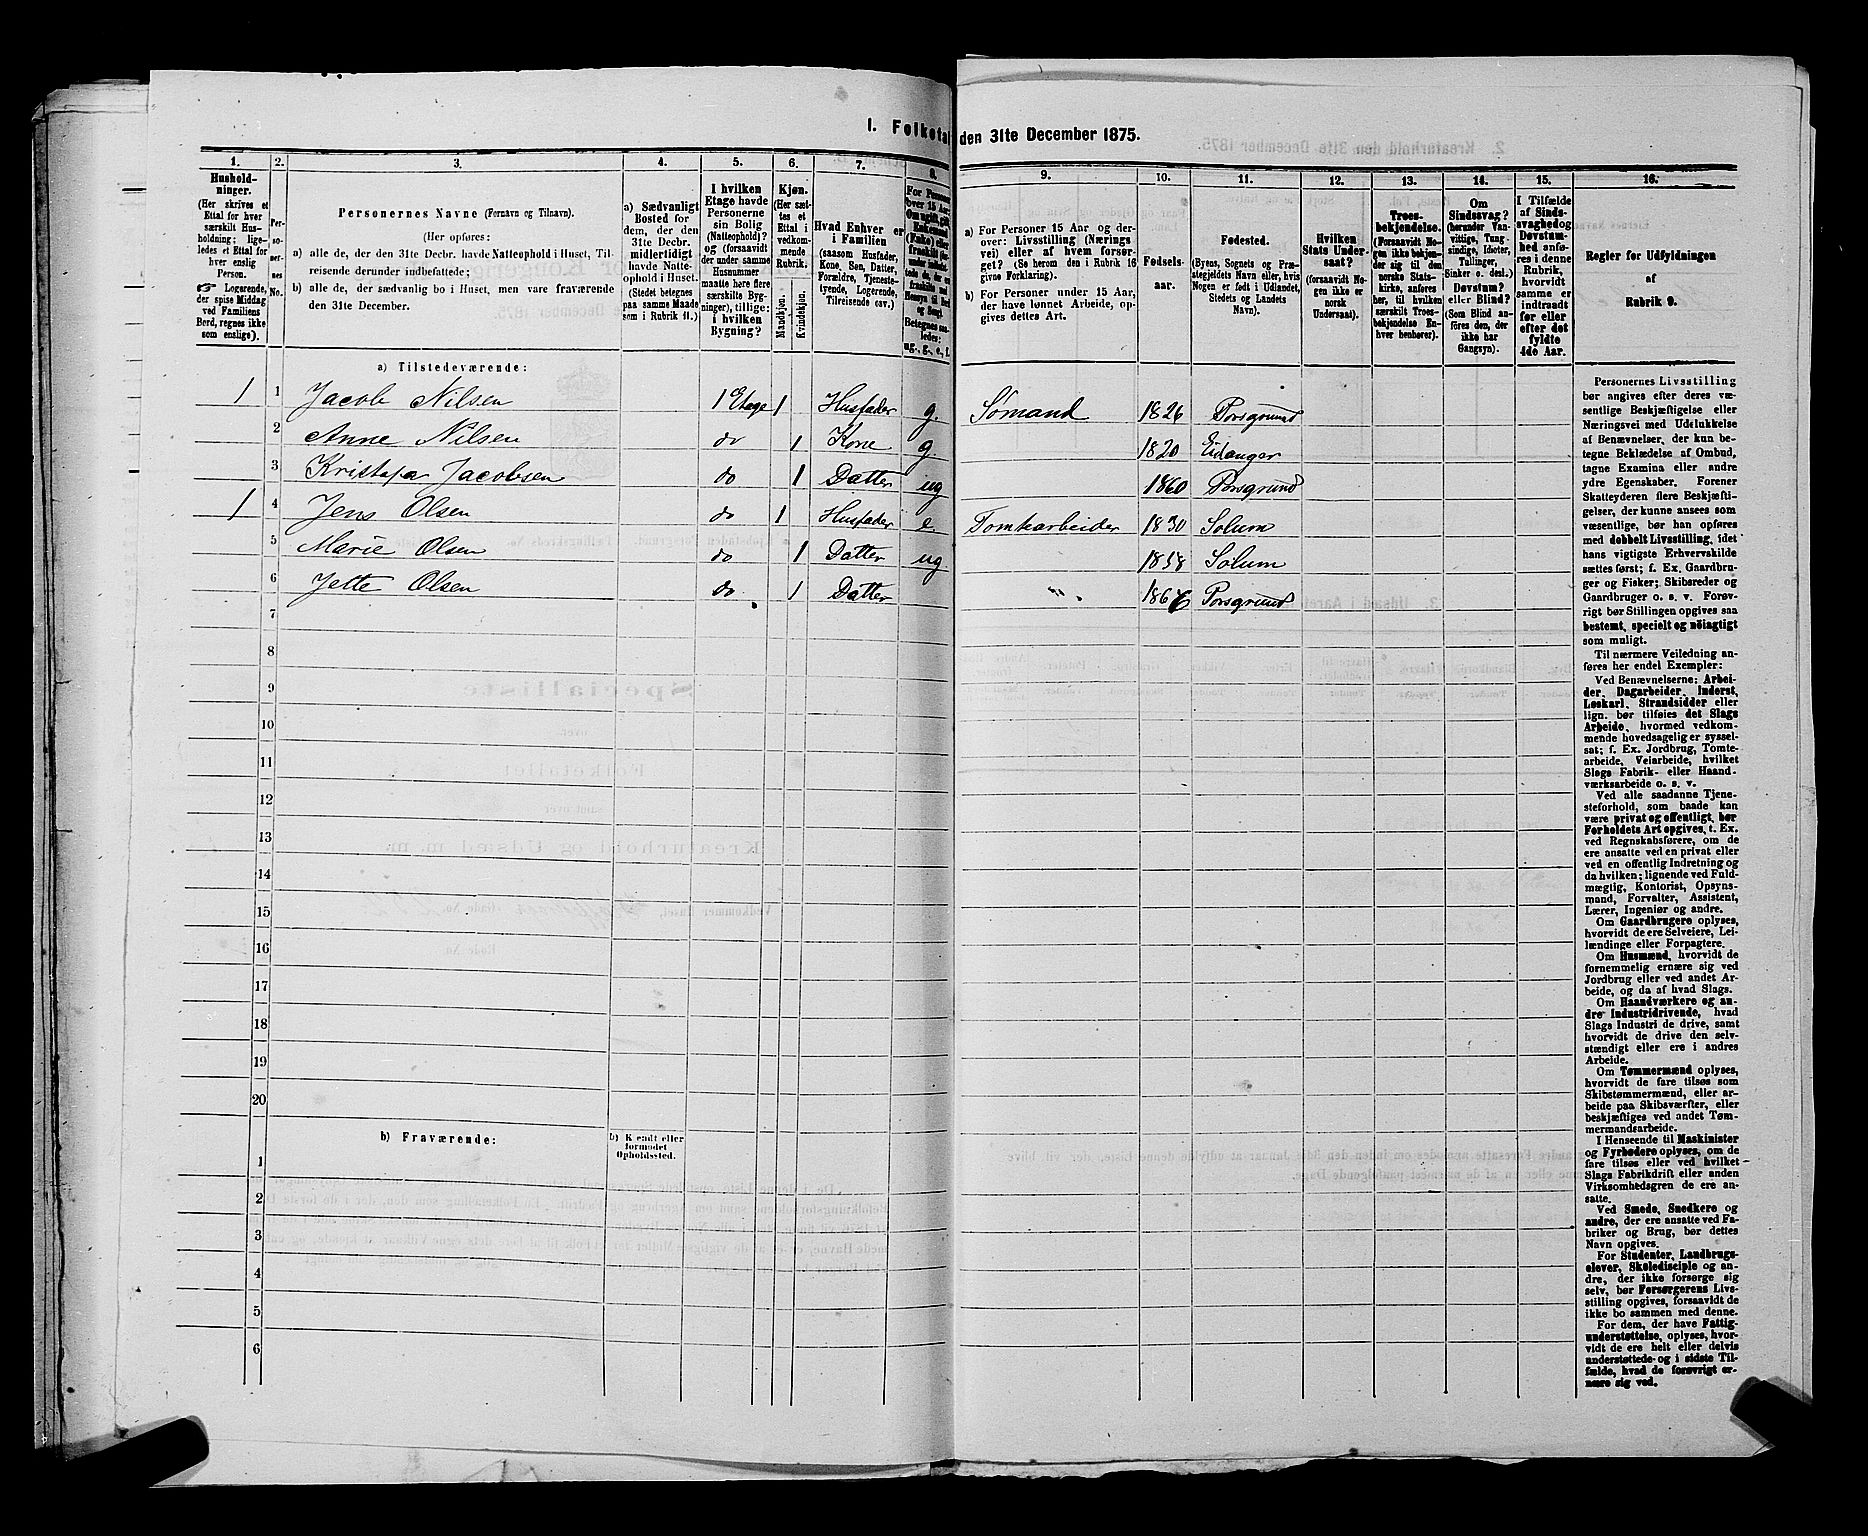 I. Folketal den 31te December 1875.
1. 2. 3. 4. 5. 6. 7. 8. 9. 10. 11. 12. 13. 14. 15. 16.
Hushold-
ninger.
(Her skrives et
Ettal for hver
særskilt Hus-
holdning; lige-
ledes et Ettal for
hver enslig
Person.
Logerende,
der spise Middag
ved Familiens
Bord, regnes ikke
som enslige).
Per-
so-
ner-
nes
No.
Personernes Navne (Fornavn og Tilnavn).
(Her opføres:
a) alle de, der den 31te Decbr. havde Natteophold i Huset, Til-
reisende derunder indbefattede;
b) alle de, der sædvanlig bo i Huset, men vare fraværende
den 31te December.
a) Sædvanligt
Bosted for
dem, der den
31te Decbr.
midlertidigt
havde Natte-
ophold i Huset.
(Stedet betegnes
paa samme Maade
som i Rubrik 11.)
I hvilken
Etage havde
Personerne
sin Bolig
(Natteophold)?
og (forsaavidt
der under samme
Husnummer
maatte høre flere
særskilte Byg-
ninger), tillige:
i hvilken
Bygning?
Kjøn.
(Her sæt-
tes et
Ettal i
vedkom-
mende
Rubrik.
Mandkjøn.
Kvindekjøn.
Hvad Enhver er
i Familien
(saasom Husfader,
Kone, Søn, Datter,
Forældre, Tjeneste-
tyende, Logerende,
Tilreisende osv.).
a) For Personer 15 Aar og der-
over: Livsstilling (Nærings
vei) eller af hvem forsør-
get? (Se herom den i Rubrik 16
givne Forklaring).
b) For Personer under 15 Aar,
der have lønnet Arbeide, op-
gives dettes Art.
Fødsels-
aar.
Fødested.
(Byens, Sognets og Præ-
stegjeldets Navn eller, hvis
Nogen er født i Udlandet,
Stedets og Landets
Navn).
Hvilken
Stats Under-
saat?
(forsaavidt No-
gen ikke er
norsk
Undersaat).
Troes-
bekjendelse.
(Forsaavidt No-
gen ikke bekjen-
der sig til den
norske Stats-
kirke, anføres
her, til hvilken
særskilt Troes-
bekjendelse En-
hver henhører).
Om
Sindssvag?
(herunder Van-
vittige, Tung-
sindige, Idioter,
Tullinger,
Sinker o. desl.)
Døvstum?
eller Blind?
(Som Blind an-
føres den, der
ikke har
Gangsyn).
I Tilfælde
af Sinds-
svaghedog
Døvstum-
hed anfø-
res i denne
Rubrik,
hvorvidt
samme er
indtraadt
før eller
efter det
fyldte
4de Aar.
Regler for Udfyldningen
af
Rubrik 9.
a) Tilstedeværende:
1 1 Jacob Nilsen 1 Etage 1 Husfader g. Sømand 1826 Porsgrund
2 Anne Nilsen do 1 Kone g 1820 Eidanger
3 Jacobsen do 1 Datter ug 1860 Porsgrund
1 4 Jens Olsen do 1 Husfader e Tomtearbeider 1830 Solum
5 Marie Olsen do 1 Datter ug 1858 Solum
6 Jette Olsen do 1 Datter " " Porsgrund
7
8
9
10
11
12
13
14
15
16
17
18
19
20
b) Fraværende:
b) Kjendt eller
formodet
Opholdssted.
1
2
3
4
5
6
Personernes Livsstilling
bør angives efter deres væ-
sentlige Beskjæftigelse eller
Næringsvei med Udelukkelse
af Benævnelser, der kun be-
tegne Beklædelse af Ombud,
tagne Examina eller andre
ydre Egenskaber. Forener
Skatteyderen flere Beskjæfti-
gelser, der kunne ansees som
væsentlige, bør han opføres
med dobbelt Livsstilling, idet
hans vigtigste Erhvervskilde
sættes først; f. Ex. Gaardbru-
ger og Fisker; Skibsreder og
Gaardbruger o. s. v. Forøv-
rigt bør Stillingen opgives saa
bestemt, specielt og nøiagtigt
som muligt.
Til nærmere Veiledning an-
føres her endel Exempler:
Ved Benævnelserne: Arbei-
der, Dagarbeider, Inderst,
Løskarl, Strandsidder eller
lign. bør tilføies det Slags
Arbeide, hvormed vedkom-
mende hovedsagelig er syssel-
sat; f. Ex. Jordbrug, Tomte-
arbeide, Veiarbeide, hvilket
Slags Fabrik- eller Haand-
værksarbeide o. s. v.
Ved alle saadanne Tjene-
steforhold, som baade kan
være privat og offentligt, bør
Forholdets Art opgives, t. Ex.
ved Regnskabsførere, om de
ere ansatte ved en privat eller
ved en offentlig Indretning og
da hvilken; lignende ved Fuld-
mægtig, Kontorist, Opsyns-
mand, Forvalter, Assistent,
Lærer, Ingeniør og andre.
Om Gaardbrugere oplyses,
hvorvidt de ere Selveiere, Lei-
lændinge eller Forpagtere.
Om Husmænd, hvorvidt de
fornemmelig ernære sig ved
Jordbrug eller ved andet Ar-
beide, og da af hvad Slags.
Om Haandværkere og an-
dre Industridrivende, hvad
Slags Industri de drive, samt
hvorvidt de drive den selv-
stændigt eller ere i andres
Arbeide.
Om Tømmermænd oplyses,
hvorvidt de fare tilsøs som
Skibstømmermænd, eller ar-
beide paa Skibsværfter, eller
beskjæftiges ved andet Tøm-
mermandsarbeide.
I Henseende til Maskinister
og Fyrbødere oplyses, om de
fare tilsøs eller ved hvilket
Slags Fabrikdrift eller anden
Virksomhedsgren de ere an-
satte.
Ved Smede, Snedkere og
andre, der ere ansatte ved Fa-
briker og Brug, bør dettes
Navn opgives.
For Studenter, Landbrugs-
elever, Skoledisciple og an-
dre, der ikke forsørge sig
selv, bør Forsørgerens Livs-
stilling opgives, forsaavidt de
ikke bo sammen med denne.
For dem, der have Fattig-
understøttelse, oplyses, hvor-
vidt de ere helt eller delvis
understøttede og i sidste Til-
fælde, hvad de forøvrigt er-
nære sig ved.